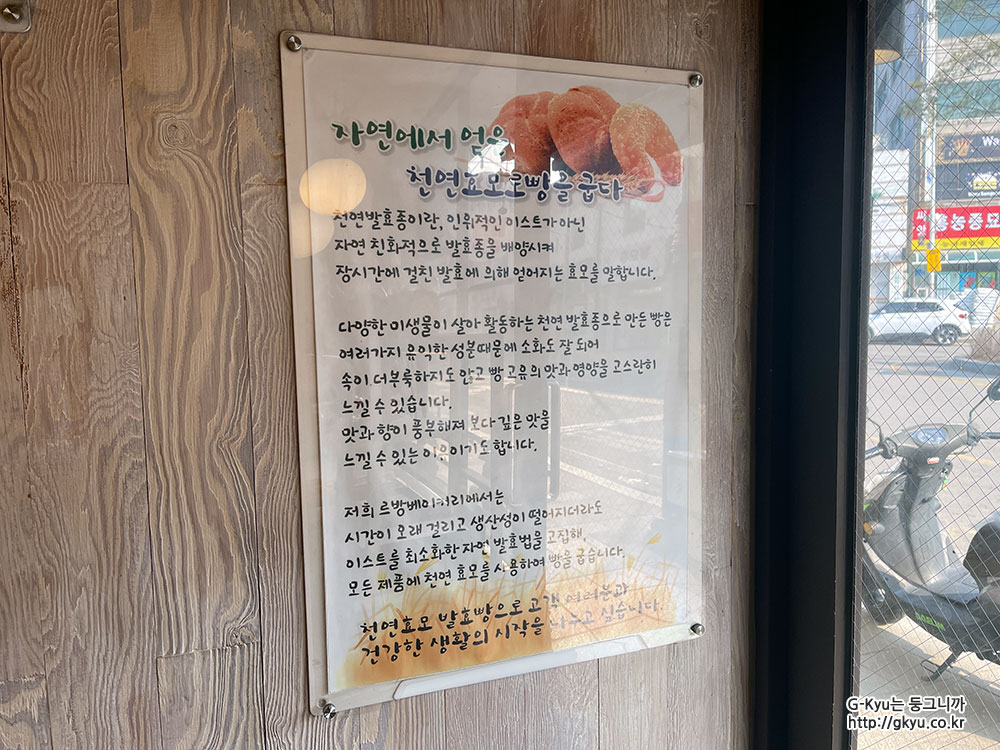 자연에서 얻은
천연효모로빵을 굽다
천연발효종이란, 인위적인 이스트가 아닌
자연 친화적으로 발효종을 배양시켜
장시간에 걸친 발효에 의해 얻어지는 효모를 말합니다.
다양한 미생물이 살아 활동하는 천연 발효종으로 만든 빵은
여러가지 유익한 성분때문에 소화도 잘 되어
속이 더부룩하지도 않고 빵 고유의 맛과 영양을 고스란히
느낄 수 있습니다.
맛과 향이 풍부해져 보다 깊은 맛을
느낄 수 있는 이유이기도 합니다.
저희 르방베이커리에서는
시간이 오래 걸리고 생산성이 떨어지더라도
이스트를 최소화한 자연 발효법을 고집해,
모든 제품에 천연 효모를 사용하여 빵을 굽습니다.
천연효모 발효빵으로 고객 여러분과
건강한 생활의 시작을 나누고 싶습니다.
씨앗
종농종묘
G-Kyu는 둥그니까
http://gkyu.co.kr